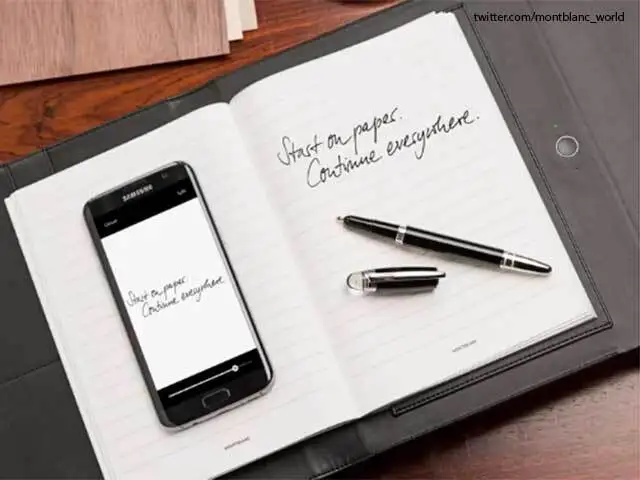 twitter.com/montblanc_world
Start on paper.
Continue everywhere.
SAMSUNG
Start on paper.
Continue everywhere.
MONTBLANC
MONTBLANC